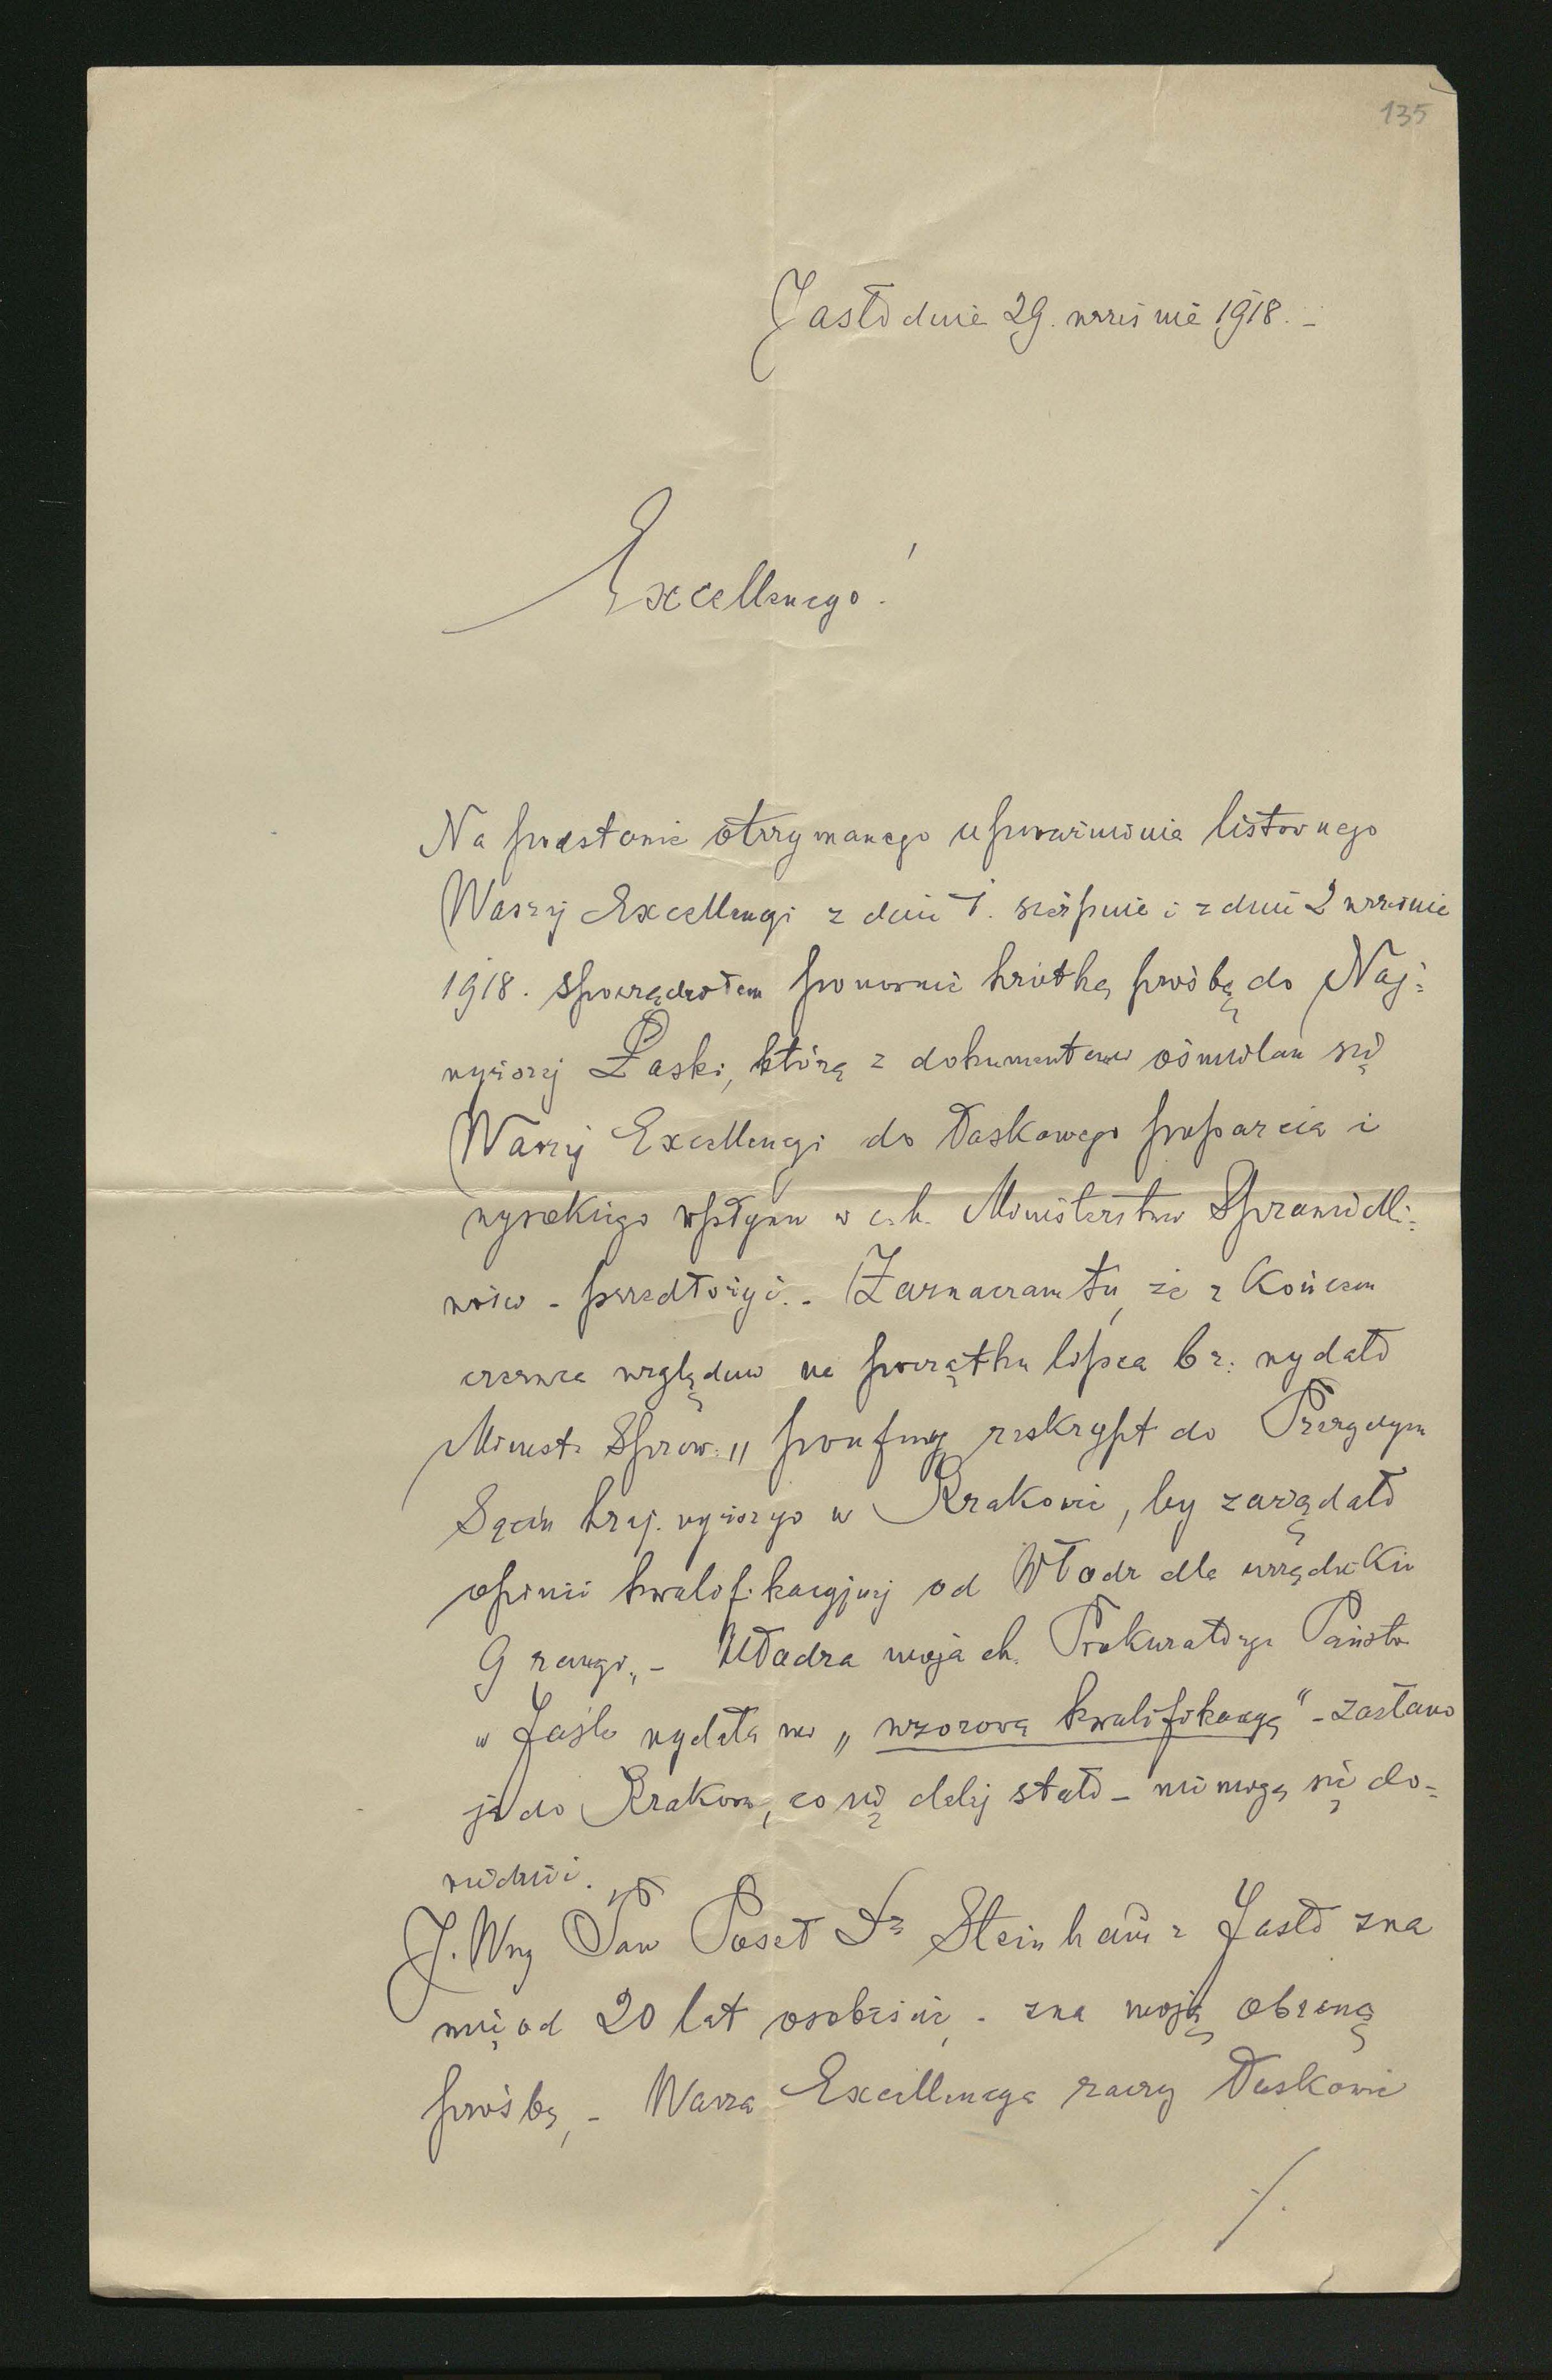 135
Jasło dnia 29. września 1918. –
Excellencyo!
Na podstawie otrzymanego upoważnienia listownego
Waszej Excellencyi z dnia 1. sierpnia i z dnia 2 września
1918. sporządziłem ponownie krótką prośbę do Naj-
wyższej Łaski, którą z dokumentami ośmielam się
Waszej Excellencyi do łaskawego poparcia i
wysokiego wpływu w c.k. Ministerstwie Sprawiedli-
wości – przedłożyć. – Zaznaczam tu, że z końcem
czerwca względnie na początku lipca br. wydało
Minist. Spraw. „poufny reskrypt do Prezydyum
Sądu kraj. wyższego w Krakowie, by zażądało
opinii kwalifikacyjnej od Władz dla urzędnika
9 rangi„ – Władza moja ck. Prokuratorya Państw
w Jaśle wydała mi „wzorową kwalifikacyę" – zasłano
ją do Krakowa, co się dalej stało – nie mogę się do-
wiedzieć.
J. Wny Pan Poseł Dr Steinhaus z Jasło zna
mię od 20 lat osobiście, – zna moją obecną
prośbę, – Wasza Excellencya raczy łaskawie
./.